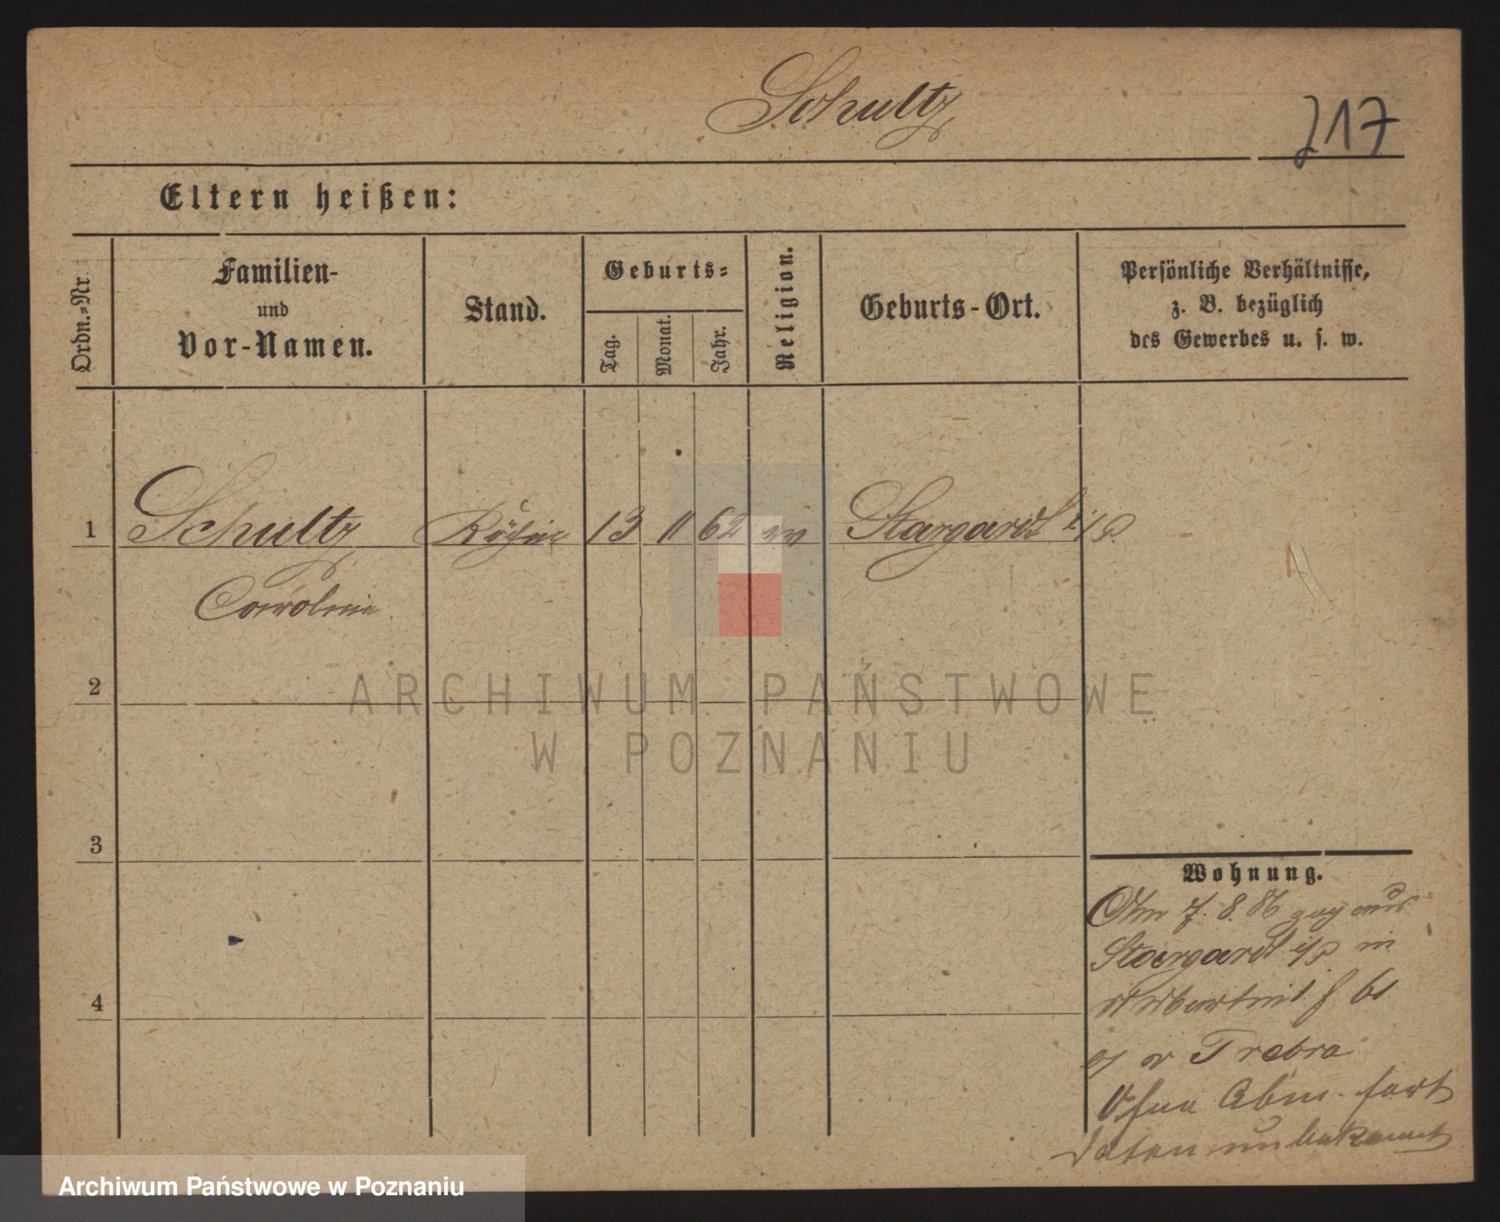 Schultz
217
Eltern heißen:
Ordn.-Nr
Familien-
und
Vor-Namen.
Stand.
Geburts-
Tag.
Monat.
Jahr.
Religion.
Geburts-Ort.
Persönliche Verhältnisse,
z. B. bezüglich
des Gewerbes u. s. w.
1 Schultz 13 11 62 Stargard i/P
Caroline
2
ARCHIWUM PAŃSTWOWE
W POZNANIU
3
4
Wohnung.
Am 7. 8. 86 zog aus
Stargard i/P in
61
v Trebra
Ohne Abm. fort
Daten unbekannt
Archiwum Państwowe w Poznaniu